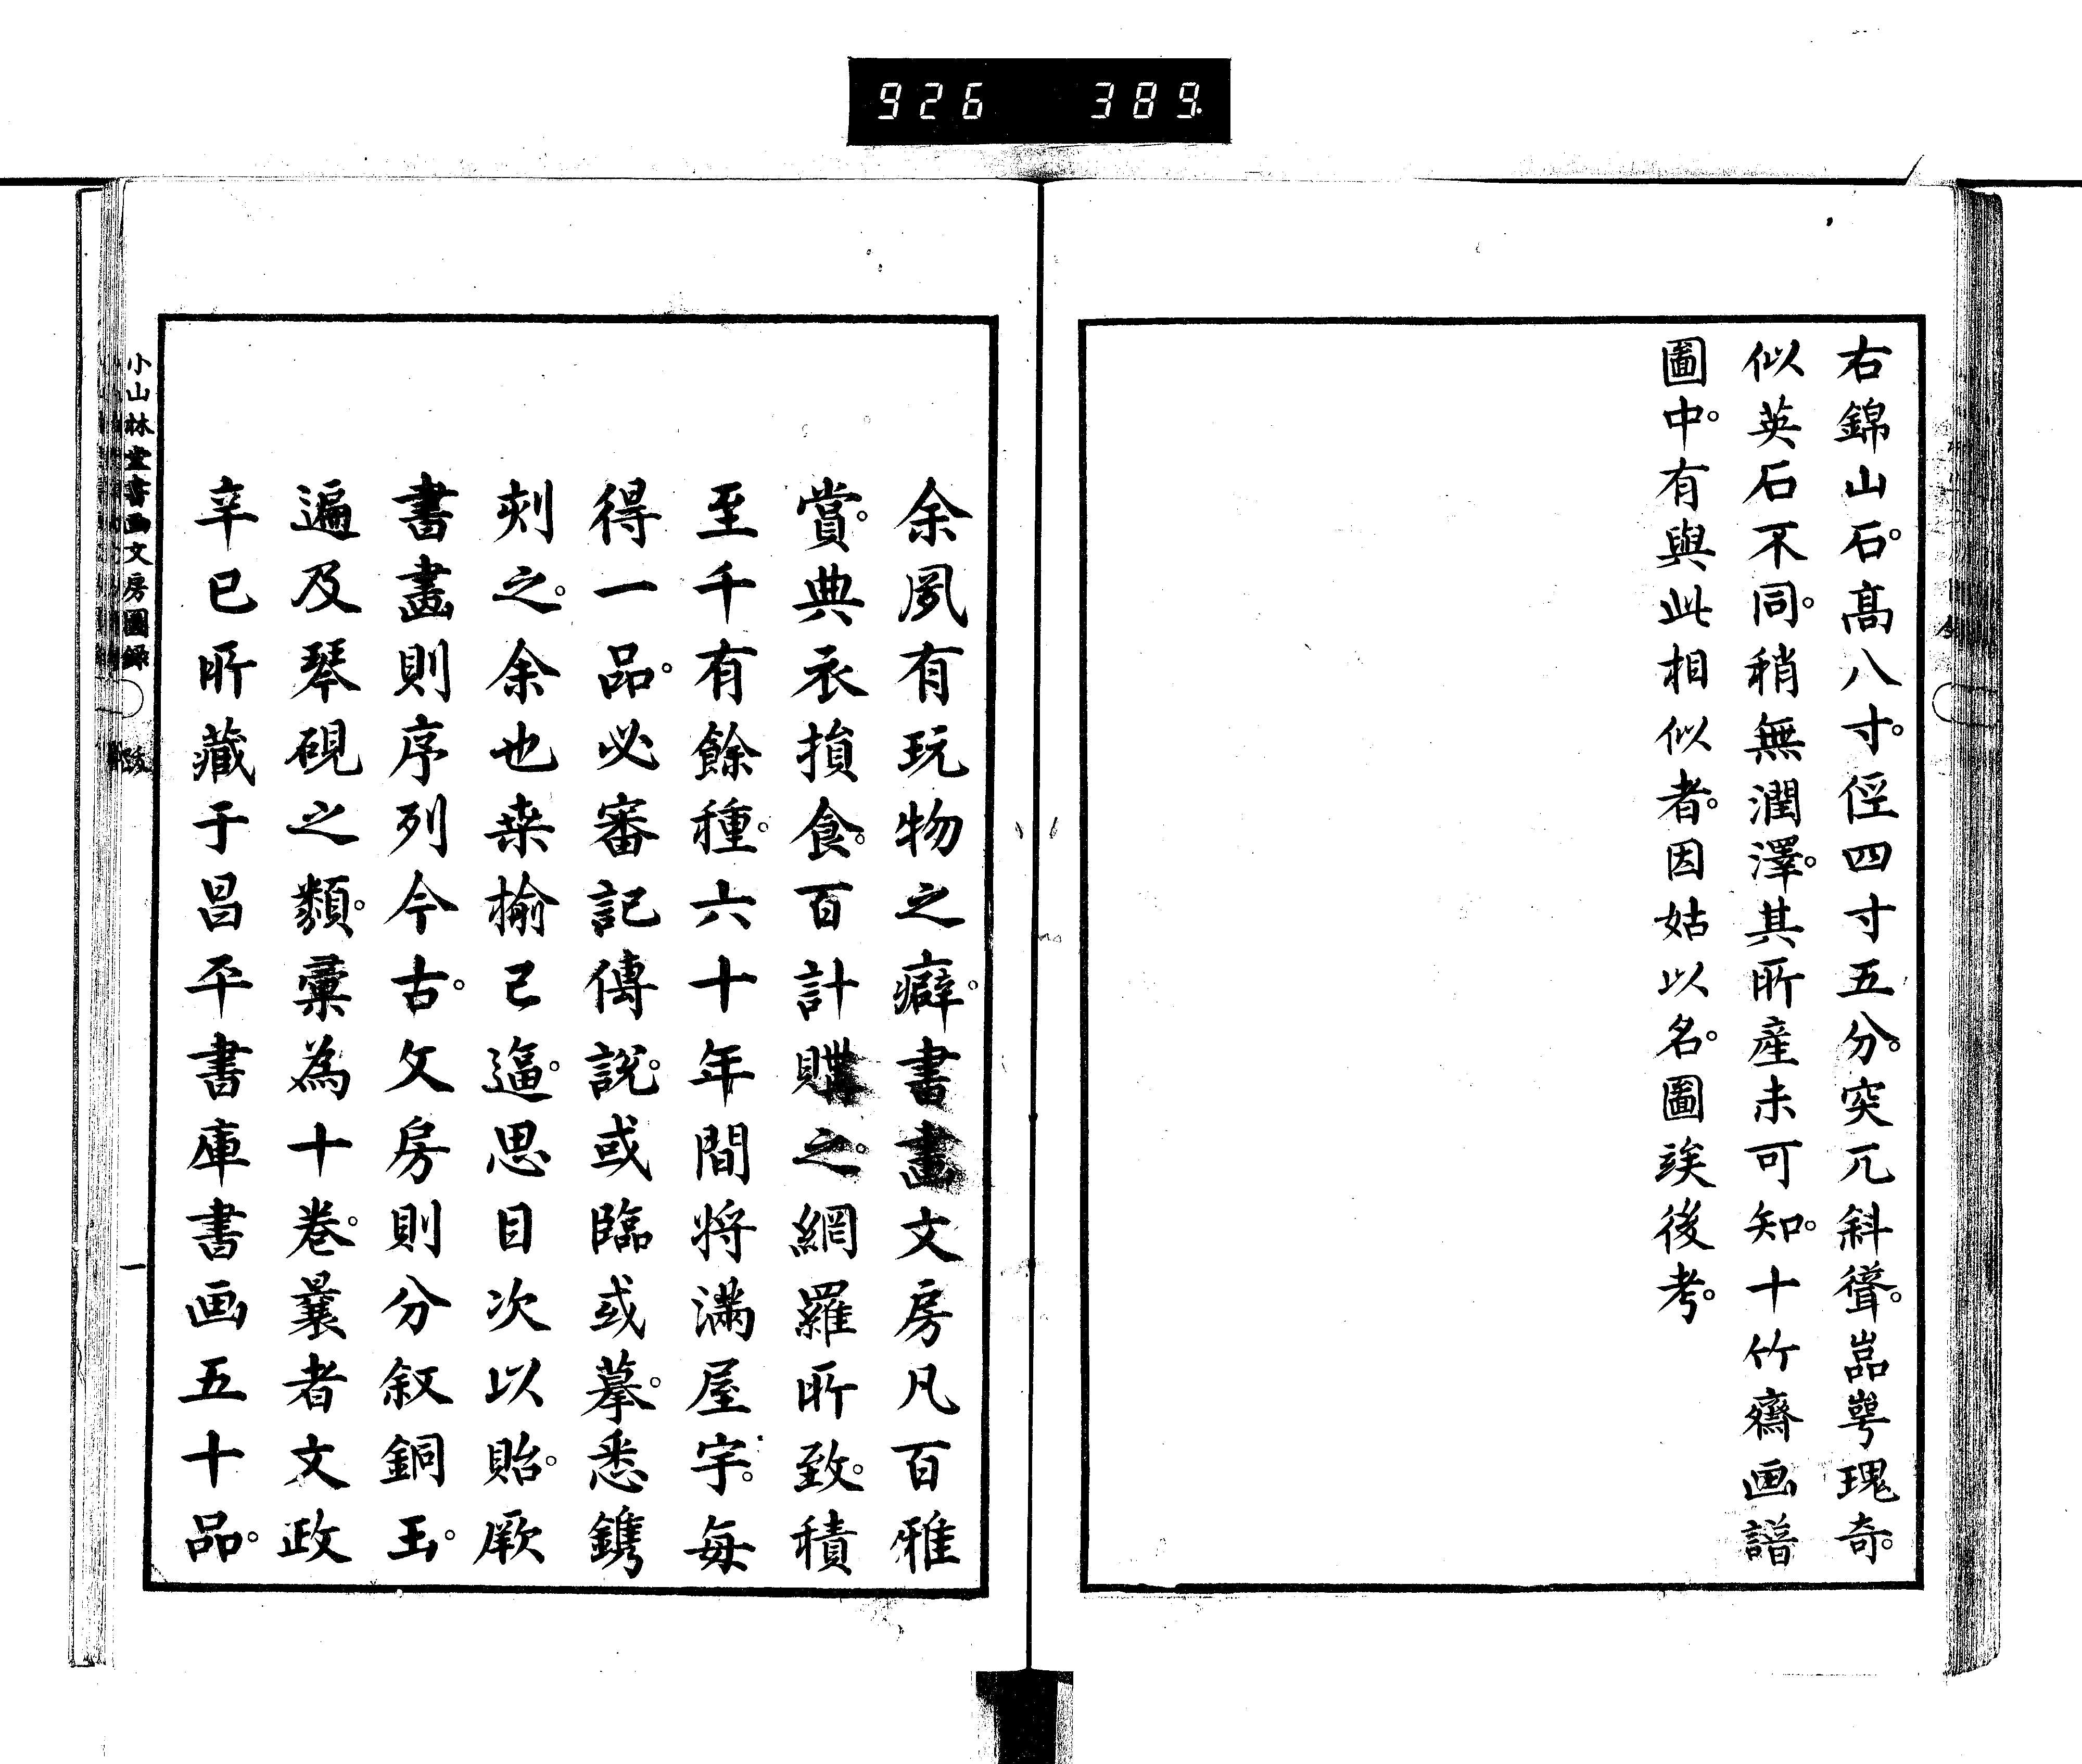 926 389
右錦山石。高八寸。徑四寸五分。突兀斜聳。嵓崿瑰奇。
似英石不同。稍無潤澤。其所産未可知。十竹齋画譜
圖中。有與此相似者。因姑以名。圖竢後考。
余夙有玩物之癖。書畫文房凡百雅
賞。典衣損食。百計購之。網羅所致。積
至千有餘種。六十年間将滿屋宇。每
得一品。必審記傳說。或臨或摹。悉鐫
刻之。余也桑榆已逼。思目次以貽。厥
書畫則序列今古。文房則分叙銅玉。
遍及琴硯之類。彙為十卷。曩者文政
辛巳所藏于昌平書庫書画五十品。
小山林堂書画文房圖錄 跋 一